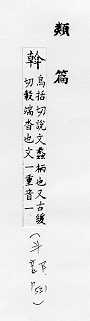 類篇
斡
烏括切說文蠡柄也又古緩
切轂端沓也文一重音一